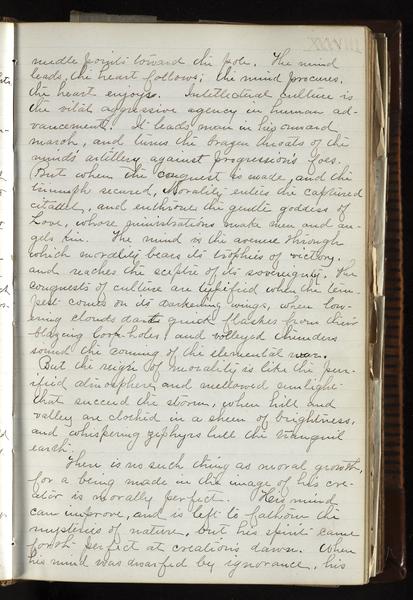 XXXVIII
needle points toward the pole. The mind
leads, the heart follows; the mind procures,
the heart enjoys. Intellectual culture is
the vital aggressive agency in human ad-
vancement. It leads man in his onward
march, and turns the brazen throats of the
mind's artillery against progression's foes.
But when the conquest is made, and the
triumph secured, Morality enters the captured
citadel, and enthrones the gentle goddess of
Love, whose ministrations make men and an-
gels kin. The mind is the avenue through
which morality bears its trophies of victory,
and reaches the sceptre of its sovereignty. The
conquests of culture are typified when the tem-
pest comes on its darkening wings, when low-
ering clouds dart quick flashes from their
blazing loop-holes, and volleyed thunders
sound the coming of the elemental war.
But the reign of morality is like the pur-
ified atmosphere and mellowed sunlight
that succeed the storm, when hill and
valley are clothed in a sheen of brightness,
and whispering zephyrs lull the tranquil
earth.
There is no such thing as moral growth,
for a being made in the image of his cre-
ator is morally perfect. His mind
can improve, and is left to fathom the
mysteries of nature, but his spirit came
forth perfect at creation's dawn. When
his mind was dwarfed by ignorance, his